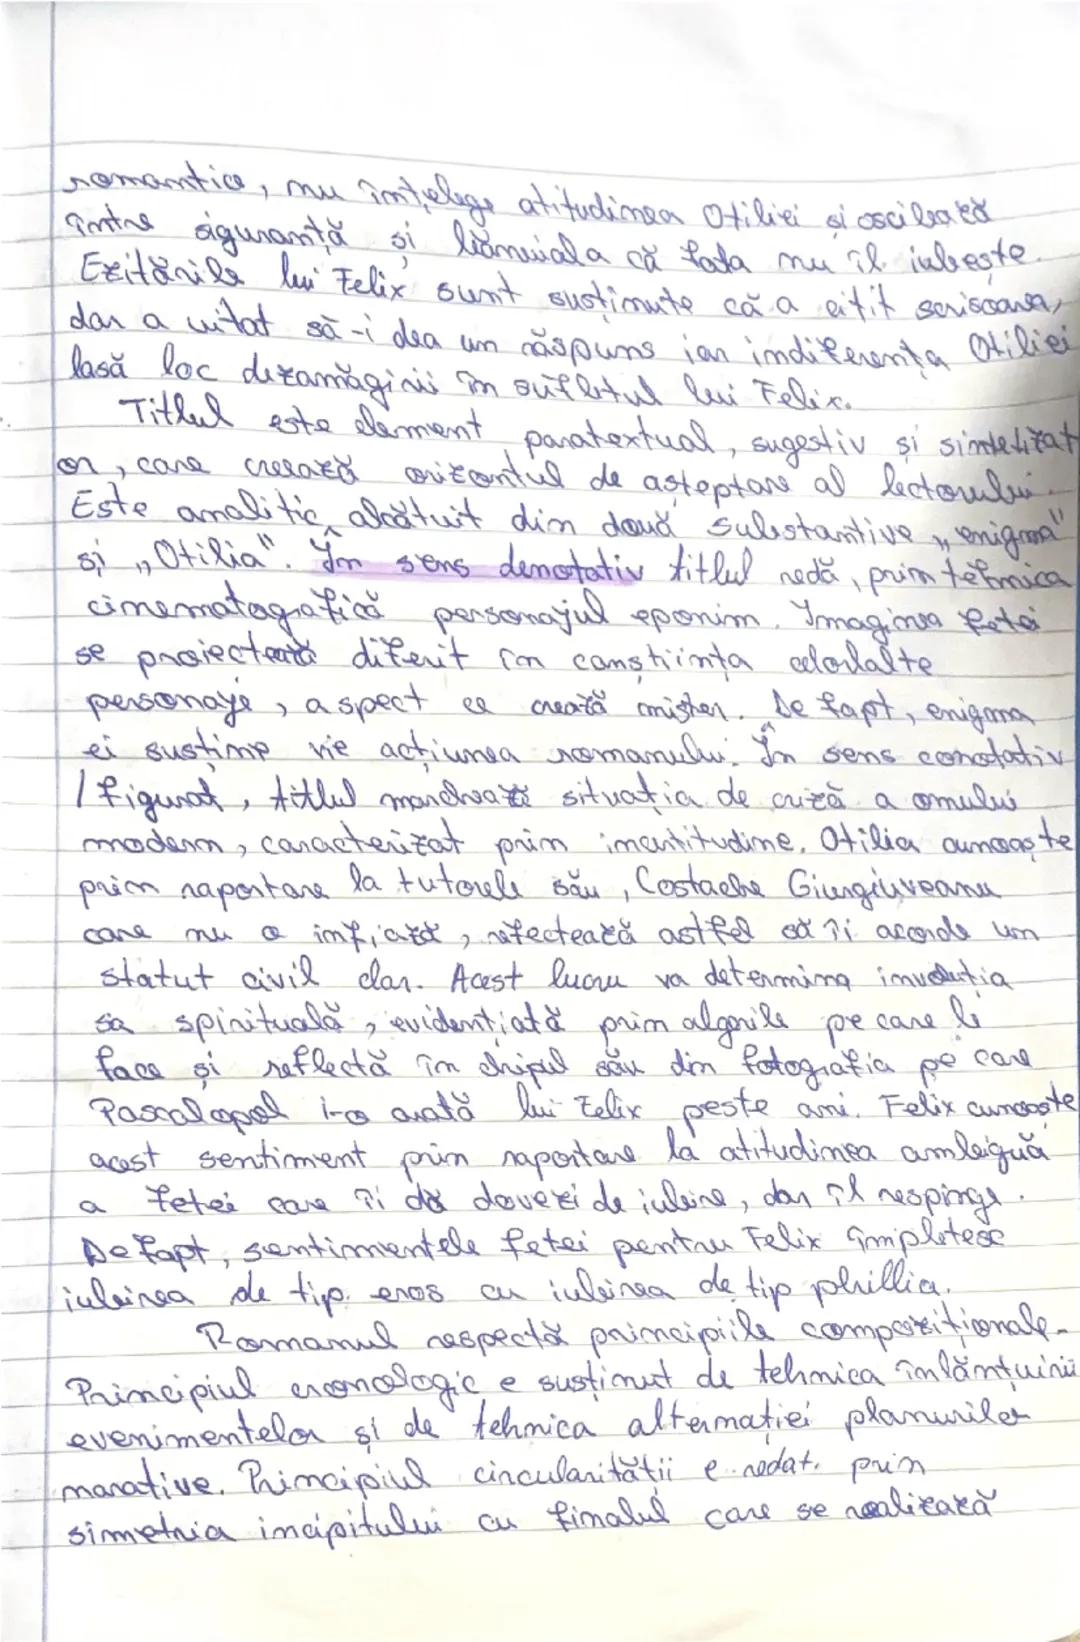 romantice, nu înțelege atitudinea Otiliei și oscilează
între siguranță și bănuiala că fata nu îl iubește.
Ezitările lui Felix sunt susținute că a citit scrisoarea,
dar a uitat să-i dea un răspuns iar indiferența Otiliei
lasă loc dezamăgirii în sufletul lui Felix.
Titlul este element paratextual, sugestiv și sintetizat
or, care creează orizontul de așteptare al lectorului.
Este analitic, alcătuit din două substantive „enigma"
și „Otilia". În sens denotativ titlul redă, prin tehnica
cinematografică personajul eponim. Imaginea fetei
se proiectează diferit în conștiința celorlalte
personaje, aspect ce crează mister. De fapt, enigma
ei susține vie acțiunea romanului. În sens conotativ
/ figurat, titlul marchează situația de criză a omului
modern, caracterizat prin incertitudine. Otilia cunoaște
prin raportare la tutorele său, Costache Giurgiuveanu
care nu o înfiază, refectează astfel să îi acorde un
statut civil clar. Acest lucru va determina involuția
sa spirituală, evidențiată prin algerile pe care le
face și reflectă în chipul său din fotografia pe care
Pascalopol i-o arată lui Felix peste ani. Felix cunoaște
acest sentiment prin raportare la atitudinea ambiguă
a fetei care îi dă dovezi de iubire, dar îl respinge.
De fapt, sentimentele fetei pentru Felix împletesc
iubirea de tip eros cu iubirea de tip phillia.
Romanul respectă principiile compoziționale.
Principiul cronologic e susținut de tehnica înlănțuirii
evenimentelor și de tehnica alternației planurilor
narative. Principiul circularității e redat prin
simetria incipitului cu finalul care se realizează